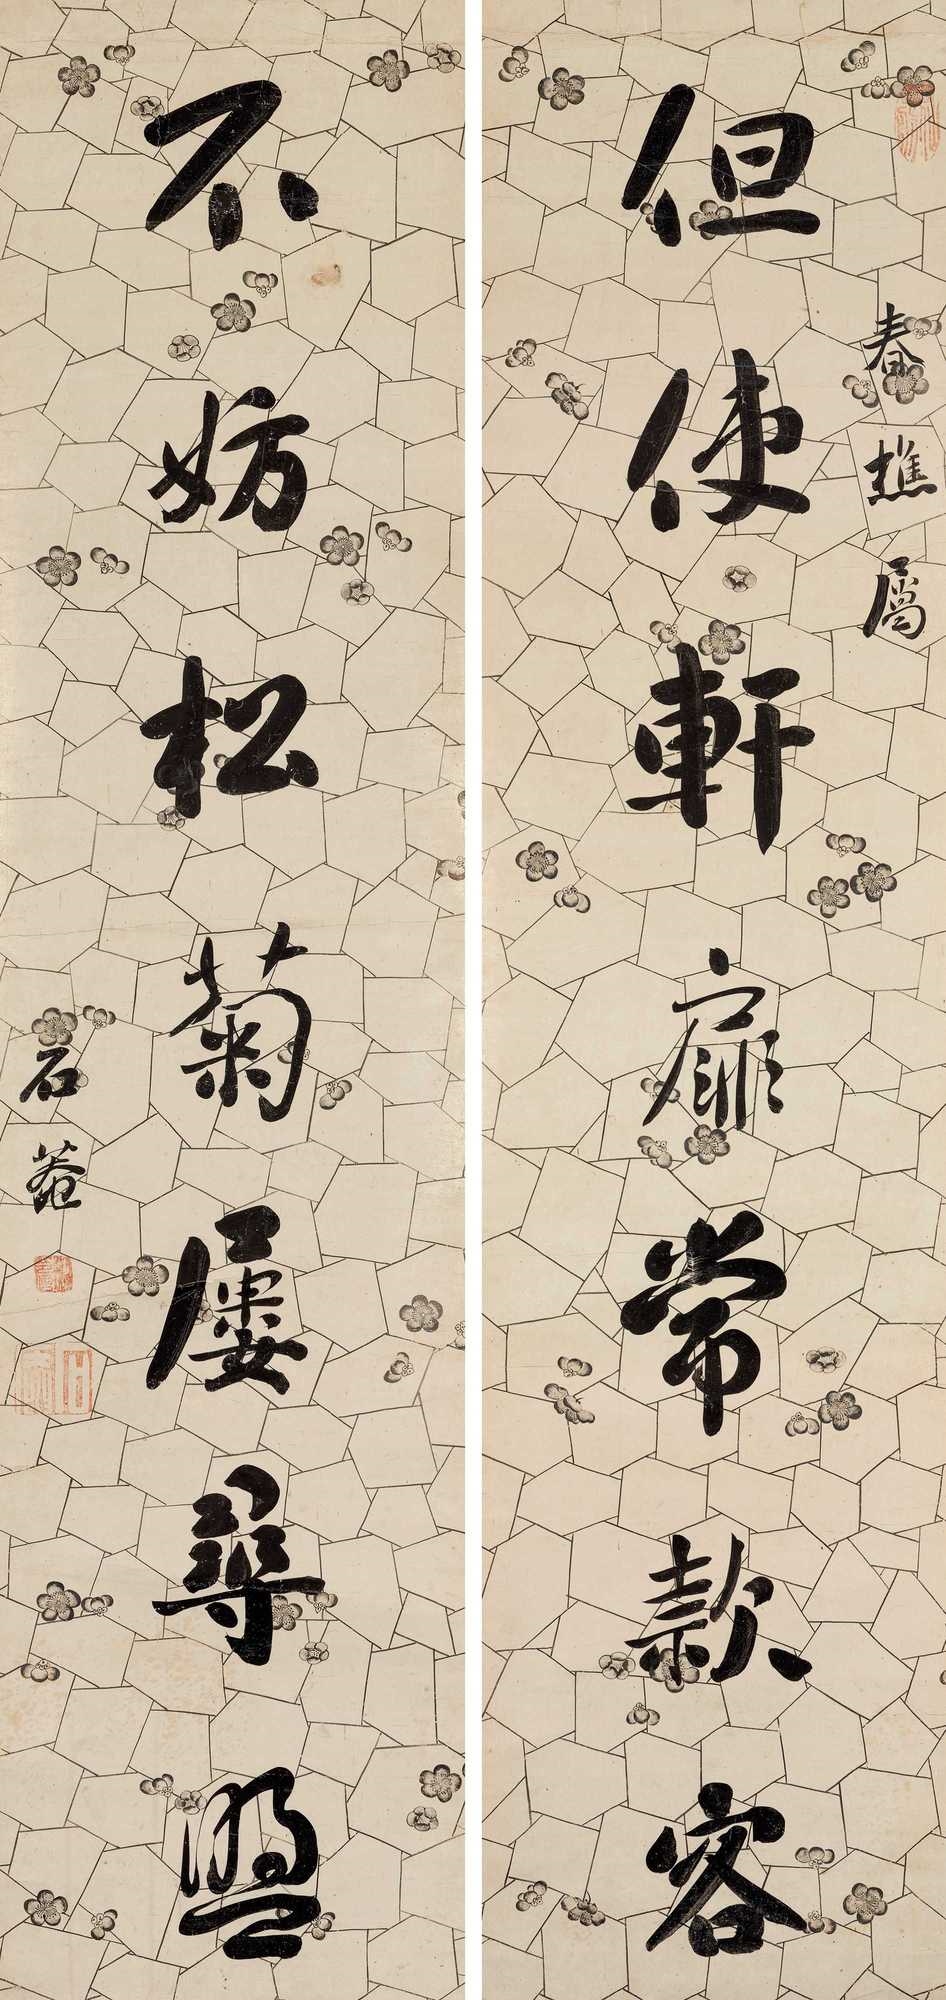 春樵屬
但使軒扉常款客
不妨松菊屢尋盟
石菴